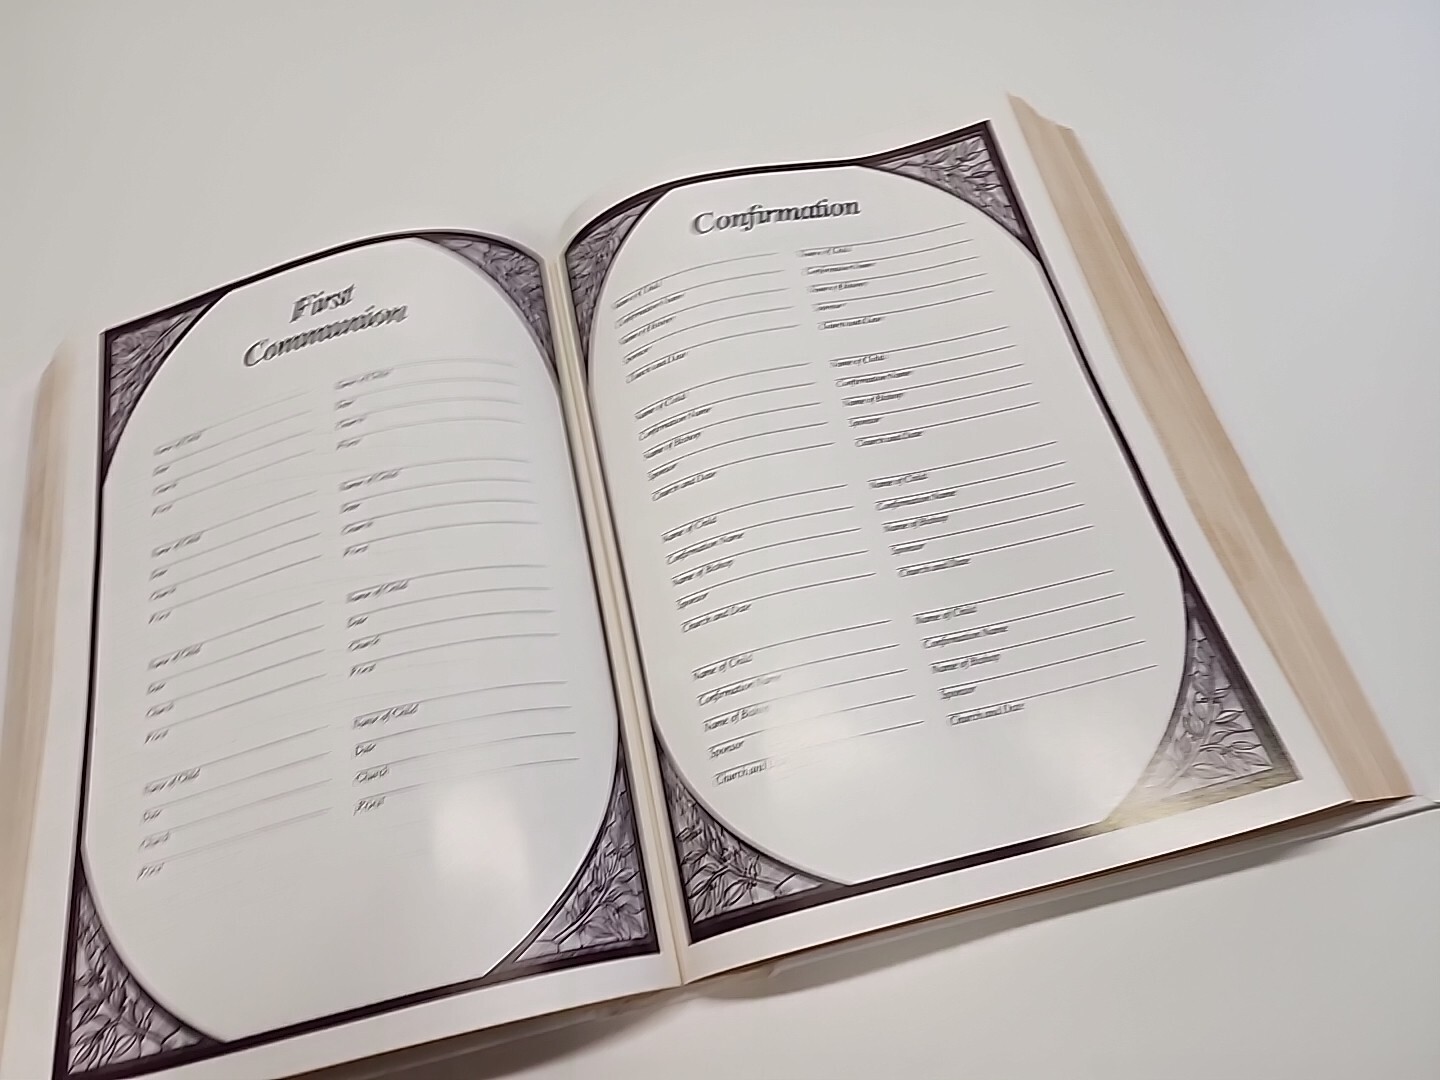 First
Communion
Name of Child
Date
Church
Priest
Name of Child
Date
Church
Priest
Name of Child
Date
Church
Priest
Name of Child
Date
Church
Priest
Name of Child
Date
Church
Priest
Name of Child
Date
Church
Priest
Name of Child
Date
Church
Priest
Name of Child
Date
Church
Priest
Confirmation
Name of Child
Confirmation Name
Name of Bishop
Sponsor
Church and Date
Name of Child
Confirmation Name
Name of Bishop
Sponsor
Church and Date
Name of Child
Confirmation Name
Name of Bishop
Sponsor
Church and Date
Name of Child
Confirmation Name
Name of Bishop
Sponsor
Church and
Name of Child
Confirmation Name
Name of Bishop
Sponsor
Church and Date
Name of Child
Confirmation Name
Name of Bishop
Sponsor
Church and Date
Name of Child
Confirmation Name
Name of Bishop
Sponsor
Church and Date
Name of Child
Confirmation Name
Name of Bishop
Sponsor
Church and Date